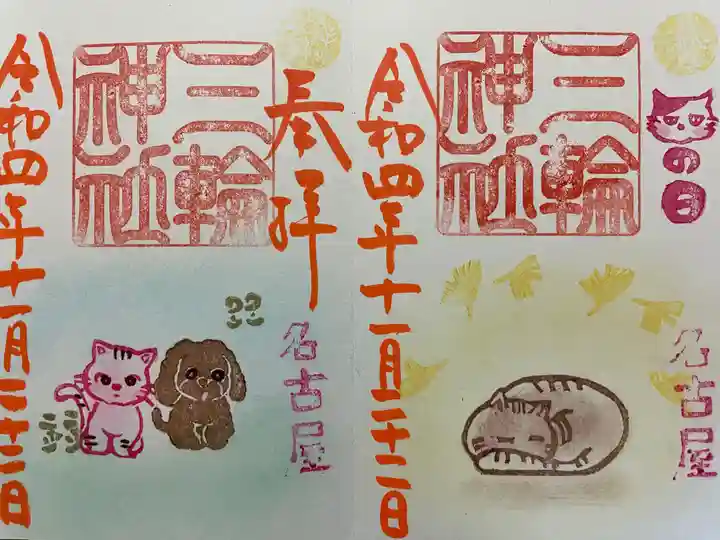 の日
三輪
神社
名古屋
令和四年十一月二十二日
奉拝
三輪
神社
名古屋
令和四年十一月二十二日